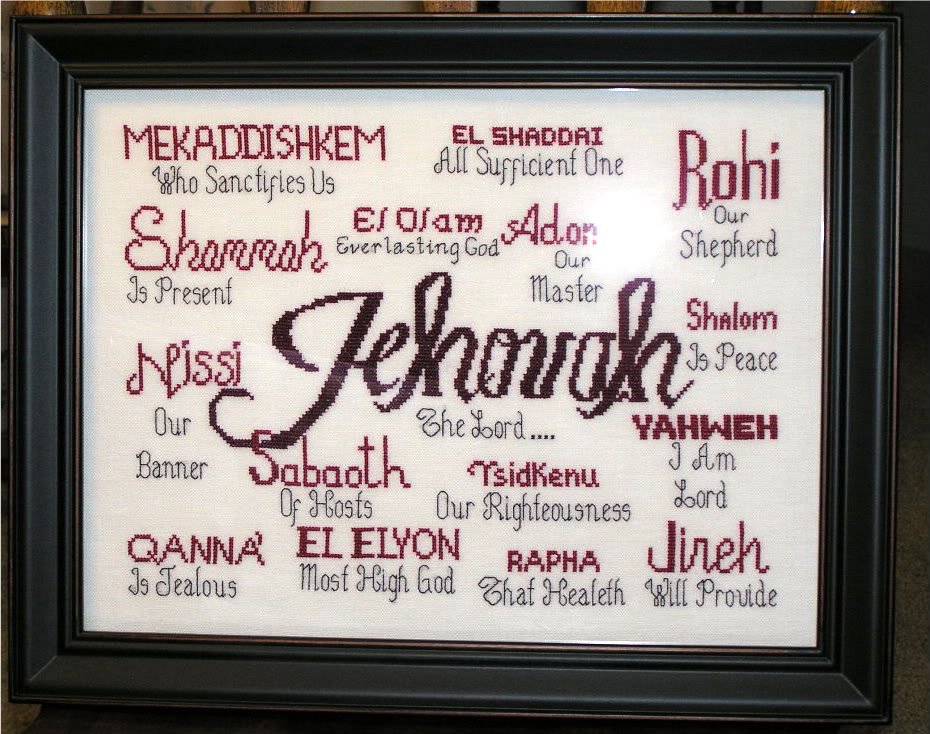 MEKADDISHKEM
Who Sanctifies Us
EL SHADDAI
All Sufficient One
Rohi
Our
Shepherd
Shammah
Is Present
El Olam
Everlasting God
Adon
Our
Master
Jehovah
The Lord ....
Shalom
Is Peace
Nissi
Our
Banner
Sabaoth
Of Hosts
Tsidkenu
Our Righteousness
YAHWEH
I Am
Lord
QANNA'
Is Jealous
EL ELYON
Most High God
RAPHA
That Healeth
Jireh
Will Provide